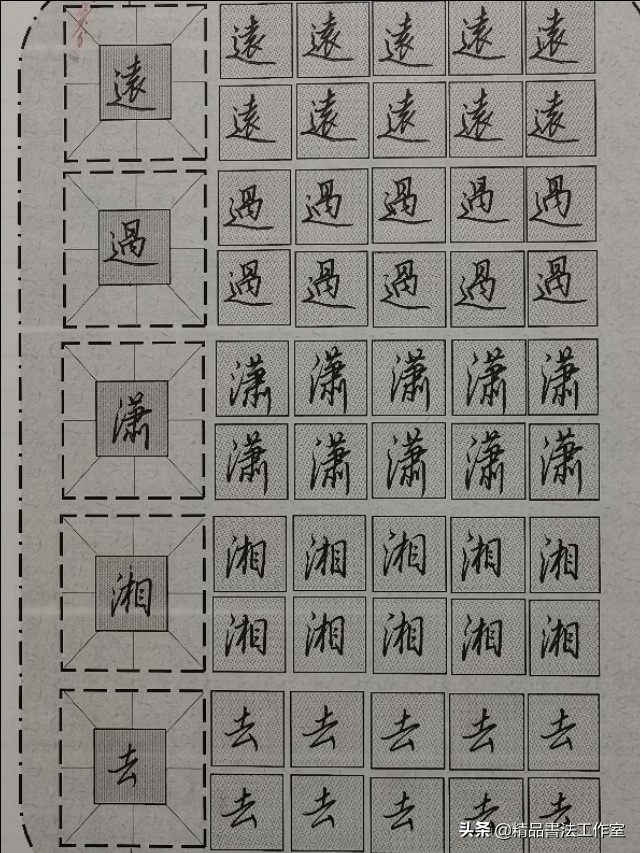 遠
遠 遠 遠 遠 遠
遠 遠 遠 遠 遠
過
過 過 過 過 過
過 過 過 過 過
潇
潇 潇 潇 潇 潇
潇 潇 潇 潇 潇
湘
湘 湘 湘 湘 湘
湘 湘 湘 湘 湘
去
去 去 去 去 去
去 去 去 去 去
头条 @精品書法工作室